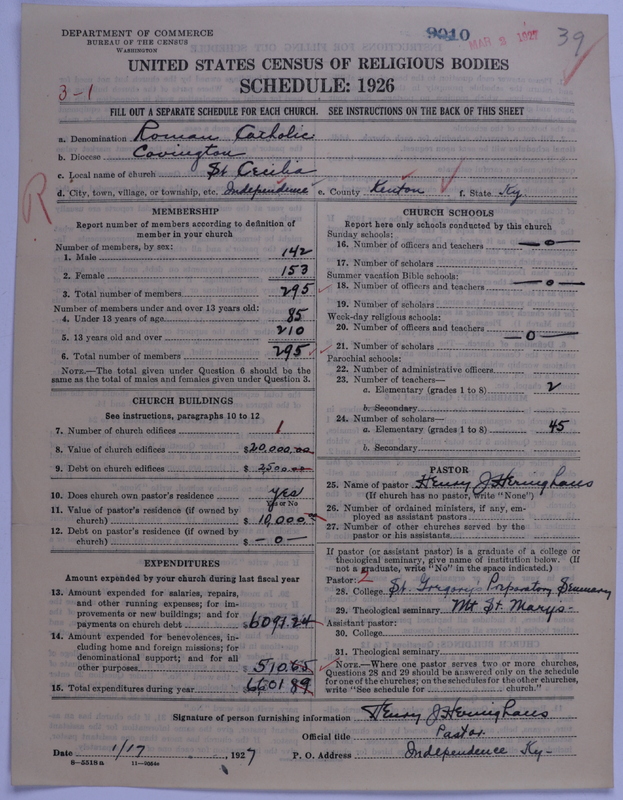 DEPARTMENT OF COMMERCE
BUREAU OF THE CENSUS
WASHINGTON
9010
MAR 2 1927
39
UNITED STATES CENSUS OF RELIGIOUS BODIES
SCHEDULE: 1926
3-1
FILL OUT A SEPARATE SCHEDULE FOR EACH CHURCH. SEE INSTRUCTIONS ON THE BACK OF THIS SHEET
a. Denomination Roman Catholic
b. Diocese Covington
c. Local name of church St Cecilia
d. City, town, village, or township, etc. Independence e. County Kenton f. State Ky.
R
MEMBERSHIP
Report number of members according to definition of
member in your church
Number of members, by sex:
1. Male 142
2. Female 153
3. Total number of members 295
Number of members under and over 13 years old:
4. Under 13 years of age 85
5. 13 years old and over 210
6. Total number of members 295
NOTE.—The total given under Question 6 should be the
same as the total of males and females given under Question 3.
CHURCH BUILDINGS
See instructions, paragraphs 10 to 12
7. Number of church edifices 1
8. Value of church edifices $20,000.00
9. Debt on church edifices $2500.00
10. Does church own pastor's residence yes
Yes or No
11. Value of pastor's residence (if owned by
church) $10,000.
12. Debt on pastor's residence (if owned by
church) $ —0—
EXPENDITURES
Amount expended by your church during last fiscal year
13. Amount expended for salaries, repairs,
and other running expenses; for im-
provements or new buildings; and for
payments on church debt $6091.24
14. Amount expended for benevolences, in-
cluding home and foreign missions; for
denominational support; and for all
other purposes $510.65
15. Total expenditures during year $6601.89
CHURCH SCHOOLS
Report here only schools conducted by this church
Sunday schools:
16. Number of officers and teachers —0—
17. Number of scholars
Summer vacation Bible schools:
18. Number of officers and teachers —0—
19. Number of scholars
Week-day religious schools:
20. Number of officers and teachers —0—
21. Number of scholars
Parochial schools:
22. Number of administrative officers
23. Number of teachers—
a. Elementary (grades 1 to 8) 2
b. Secondary
24. Number of scholars—
a. Elementary (grades 1 to 8) 45
b. Secondary
PASTOR
25. Name of pastor Henry J Heringhaus
(If church has no pastor, write "None")
26. Number of ordained ministers, if any, em-
ployed as assistant pastors
27. Number of other churches served by the
pastor or his assistants
If pastor (or assistant pastor) is a graduate of a college or
theological seminary, give name of institution below. (If
not a graduate, write "No" in the space indicated.)
Pastor: 2
28. College St. Gregory's Preparatory Seminary
29. Theological seminary Mt St. Marys-
Assistant pastor:
30. College
31. Theological seminary
NOTE.—Where one pastor serves two or more churches,
Questions 28 and 29 should be answered only on the schedule
for one of the churches; on the schedules for the other churches,
write "See schedule for church."
Signature of person furnishing information Henry J Heringhaus
Official title Pastor.
Date 1/17, 1927 P. O. Address Independence Ky-
8—5518a 11—9064a